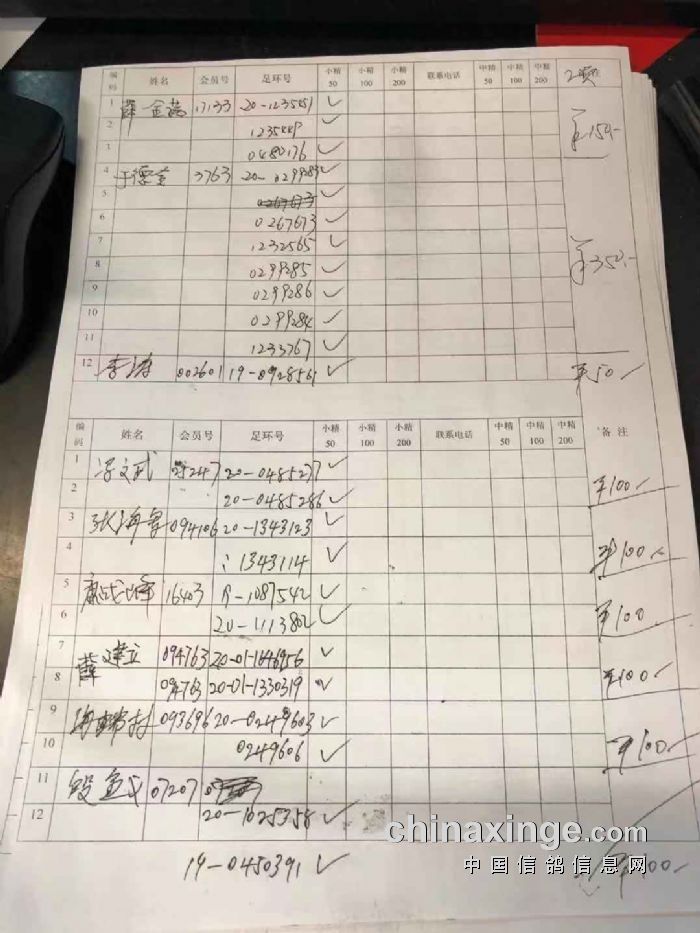 编码 姓名 会员号 足环号 小精50 小精100 小精200 联系电话 中精50 中精100 中精200
1 薛金 17133 20-1235451 ✓
2 1235449 ✓ ¥150-
3 0480176 ✓
4 于德 3763 20-0299283 ✓
5 ✓
6 0267673 ✓
7 1232565 ✓ ¥350-
8 0299285 ✓
9 0299286 ✓
10 0299284 ✓
11 1233767 ✓
12 李涛 002601 19-0928561 ✓ ¥50
编码 姓名 会员号 足环号 小精50 小精100 小精200 联系电话 中精50 中精100 中精200 备注
1 文武 20-0485277 ✓
2 20-0485286 ✓ ¥100-
3 张海 094106 20-1343123 ✓
4 1343114 ✓ ¥100-
5 康战峰 16403 19-1087542 ✓
6 20-1113802 ✓ ¥100
7 薛建立 094763 20-01-1646956 ✓
8 094763 20-01-1330319 ✓ ¥100-
9 093696 20-0249603 ✓
10 0249606 ✓ ¥100-
11 段金 07207
12 20-1025358 ✓
19-0450391 ✓ ¥100-
chinaxinge.com
中国信鸽信息网